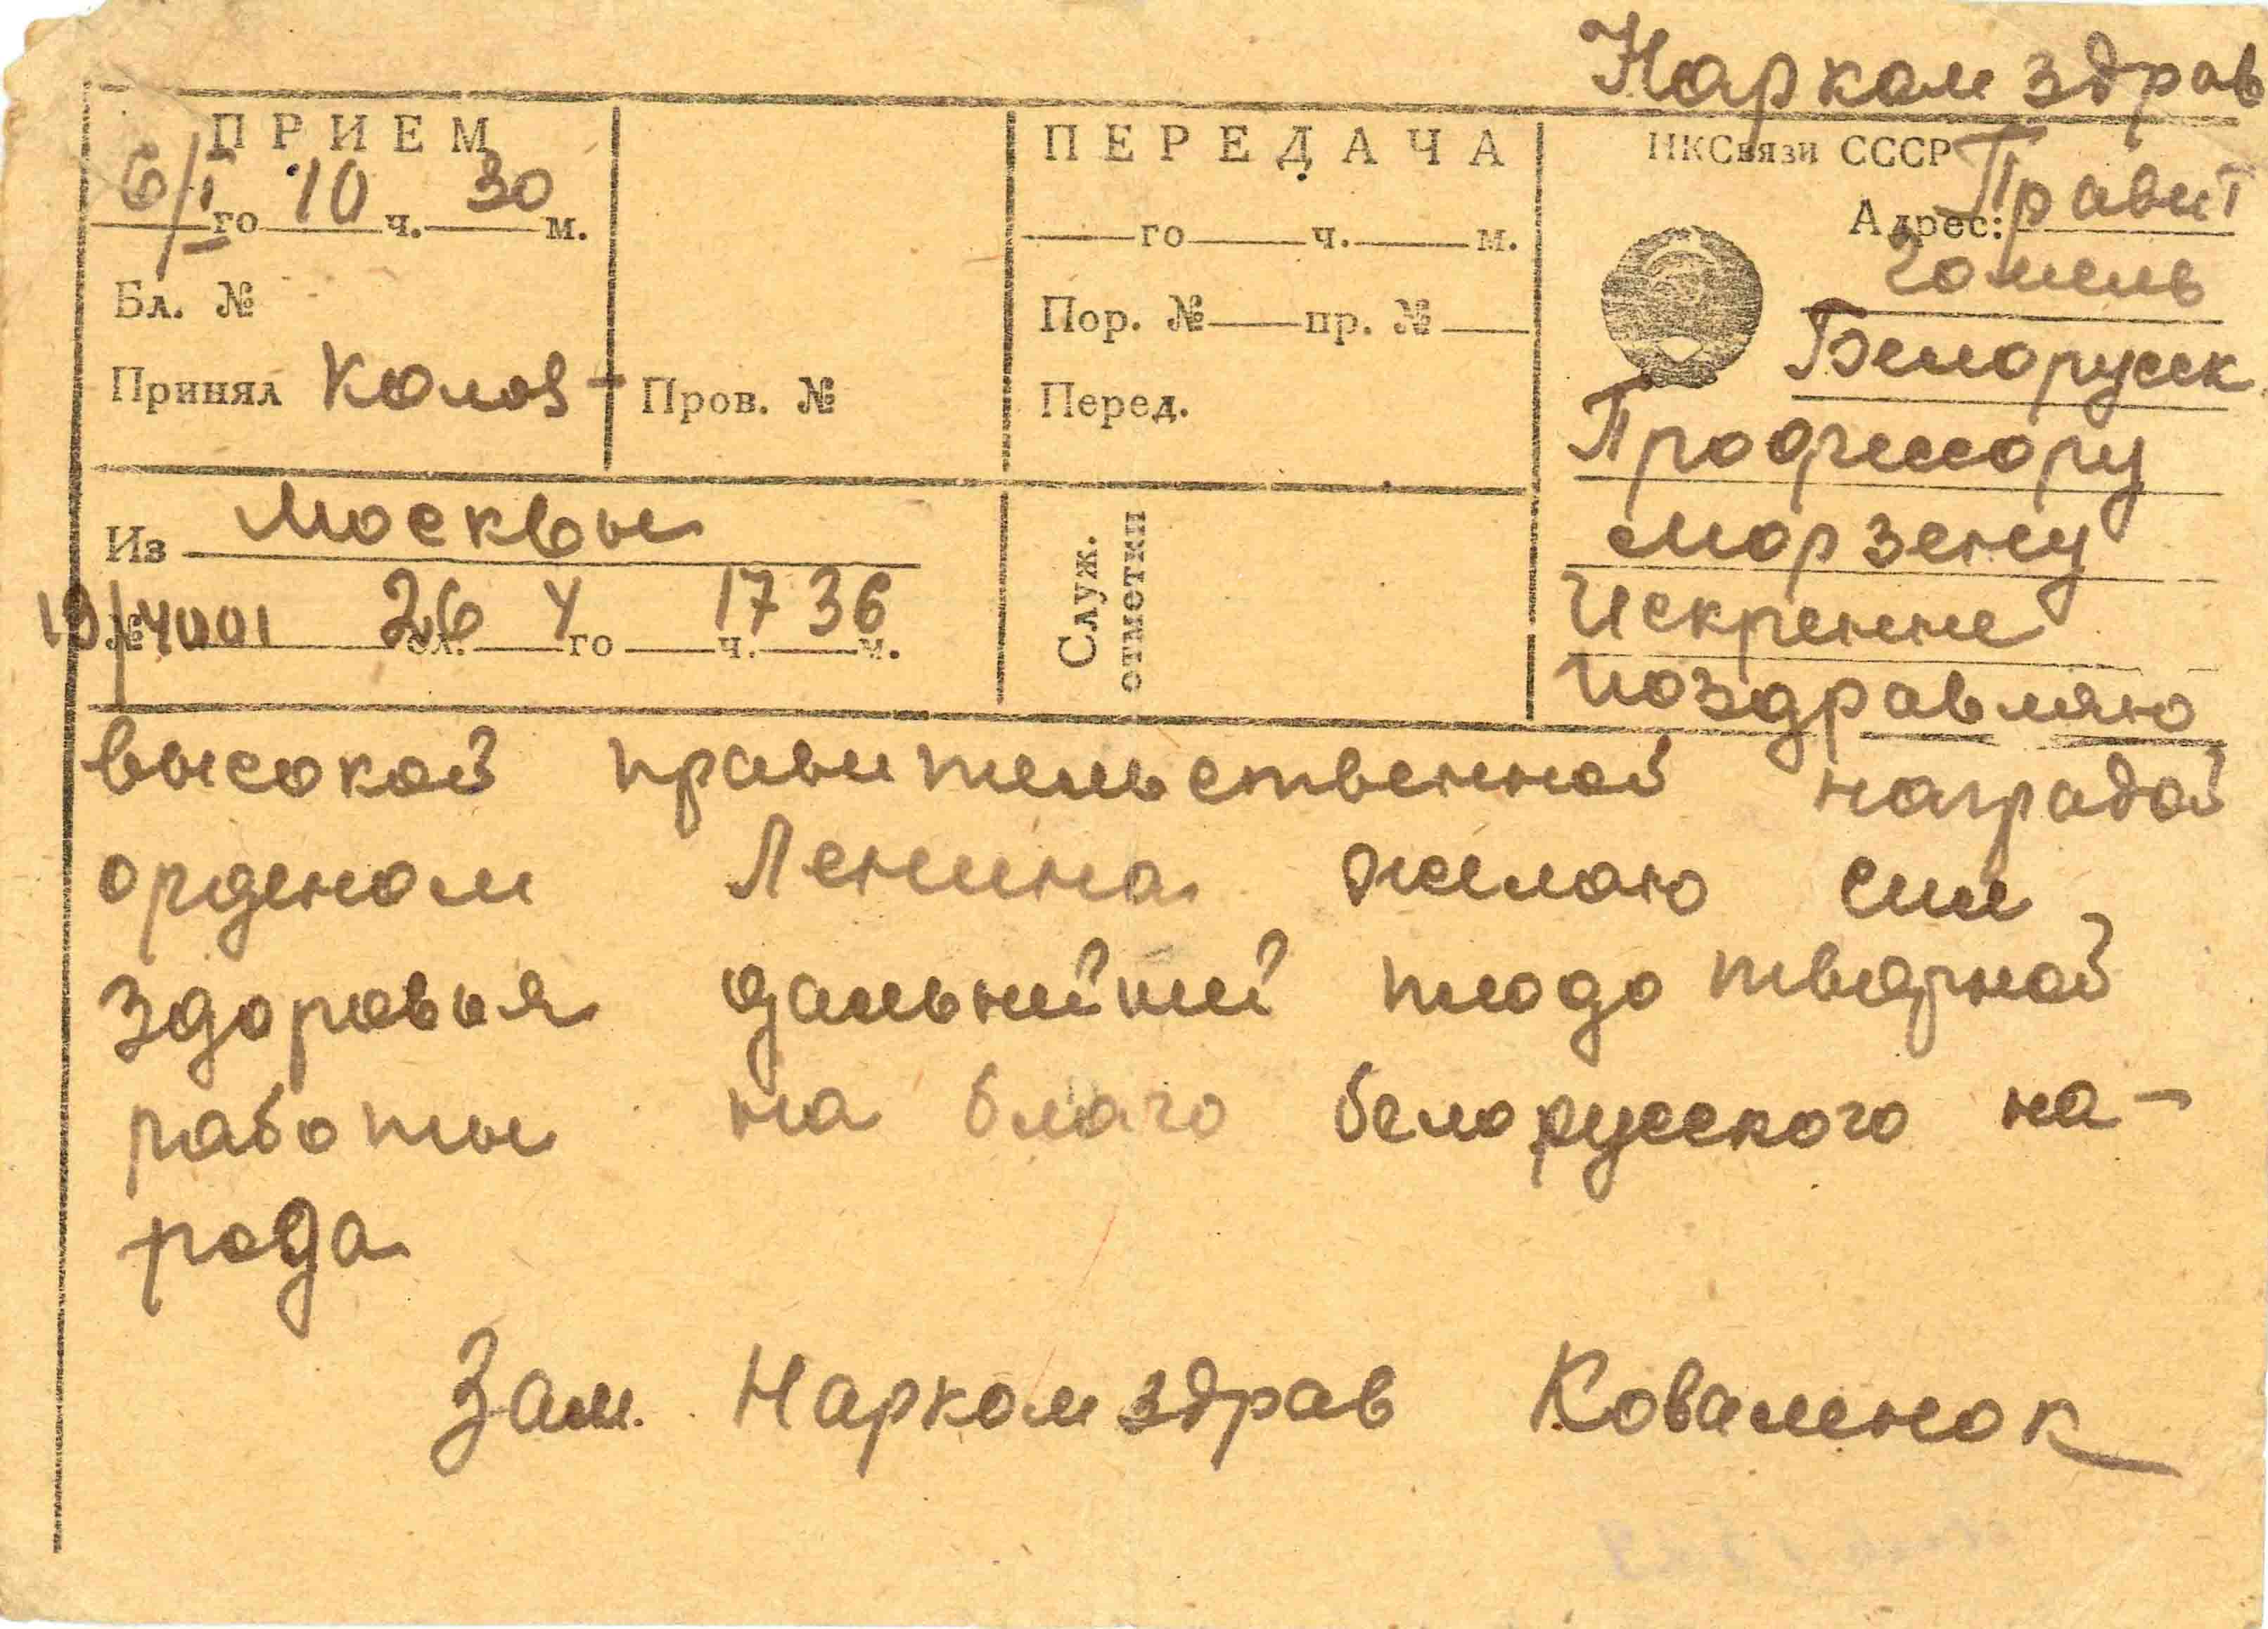 Наркомздрав
ПРИЕМ
6/I го 10 ч. 30 м.
Бл. №
Принял Колов
Пров. №
ПЕРЕДАЧА
го ч. м.
Пор. № пр. №
Перед.
НКСвязи СССР
Адрес: Правит
Гомель
Белорусск
Профессору
Морзену
Искренне
поздравляю
Из Москвы
19/4001 26 го 17 ч. 36 м.
Служ.
отметки
высокой правительственной наградой
орденом Ленина желаю сил
здоровья дальнейшей плодотворной
работы на благо белорусского на-
рода
Зам. Наркомздрав Коваленок